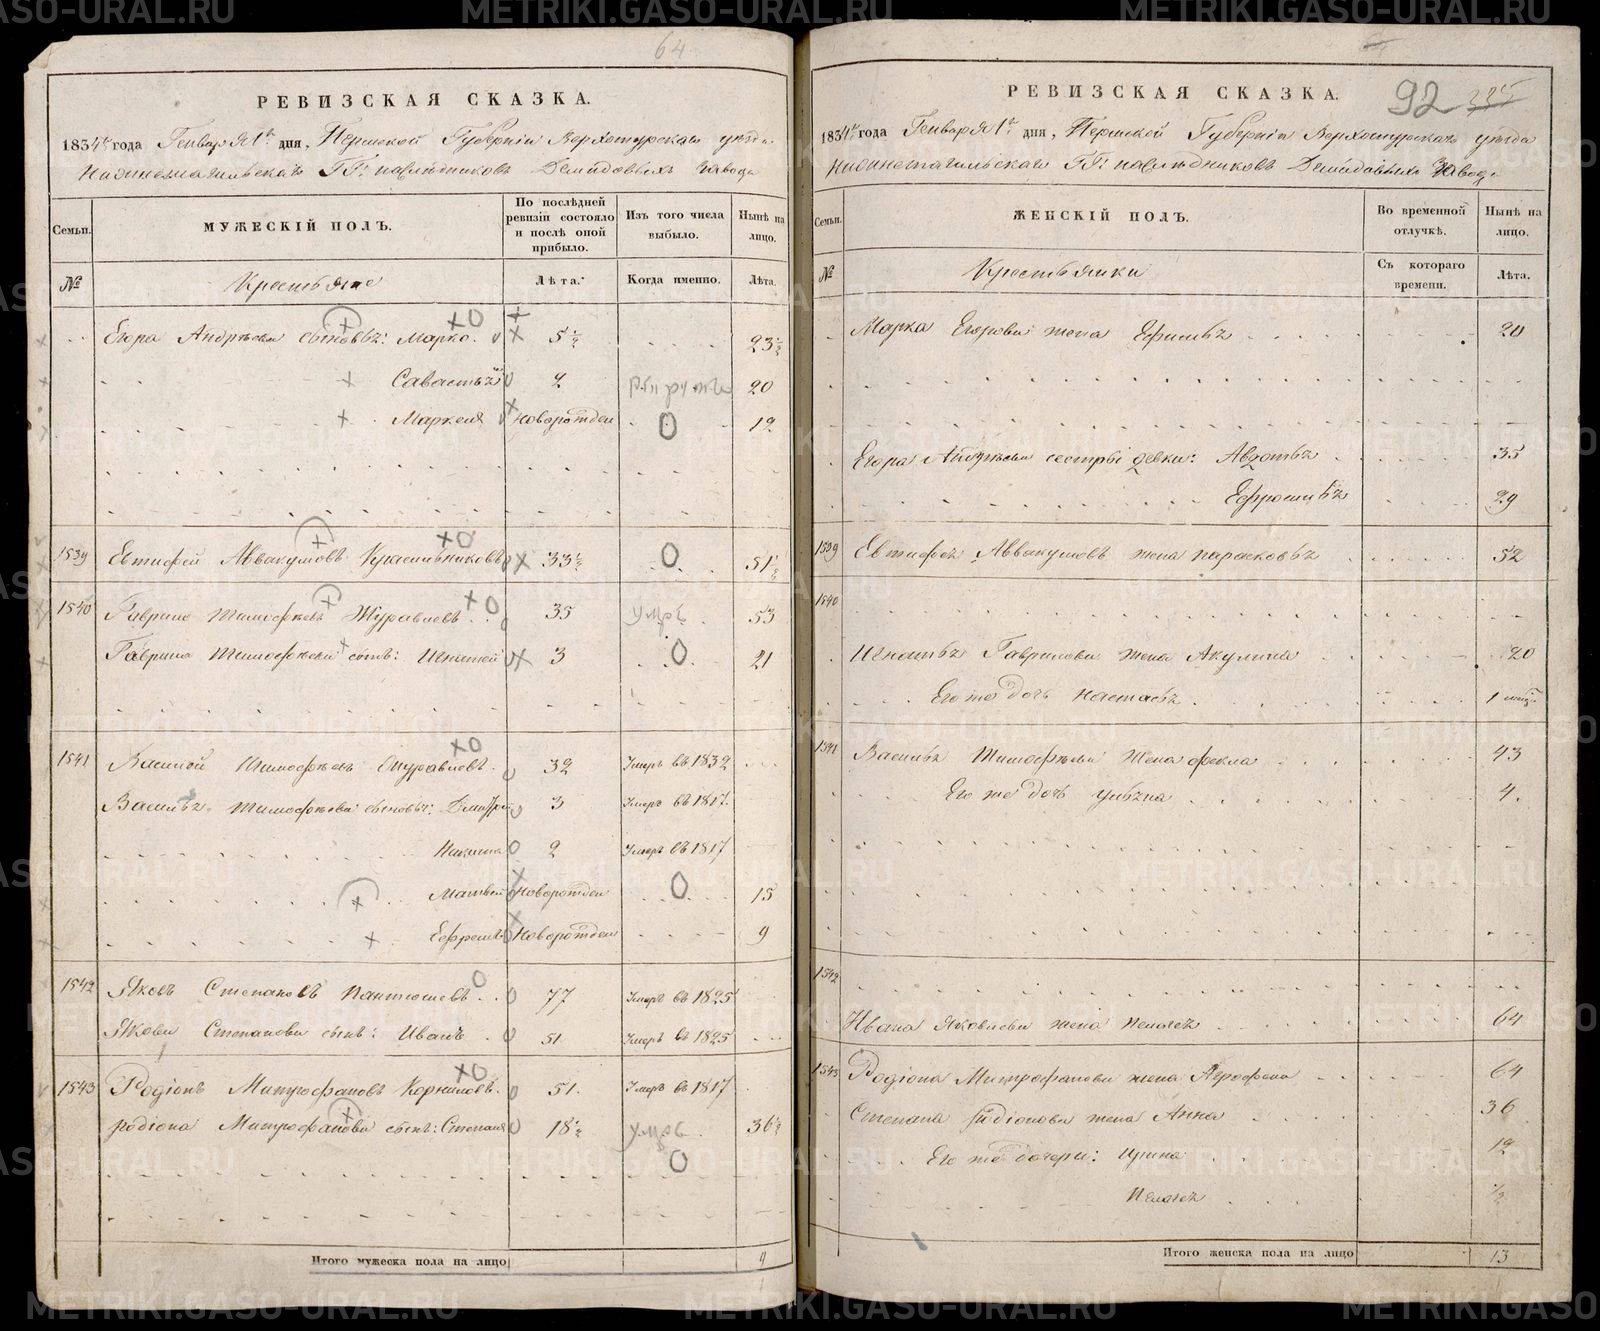 64
РЕВИЗСКАЯ СКАЗКА.
1834го года Генваря 1го дня, Пермской Губерніи Верхотурскаго уѣзда
Нижнетагильскаго ГГ: наслѣдниковъ Демидовыхъ завода
Семьи.
МУЖЕСКІЙ ПОЛЪ.
По послѣдней ревизіи состояло и послѣ оной прибыло.
Изъ того числа выбыло.
Нынѣ на лицо.
№
Крестьяне
Лѣта.
Когда именно.
Лѣта.
Егора Андрѣева сыновья: Марко. 5½ 23½
Савастьянъ 2 рекрутъ 20
Маркелъ Новорожден 0 19
1539 Евтифей Аввакумовъ Красильниковъ 33½ 0 51½
1540 Гаврило Тимофѣевъ Журавлевъ 35 умре 53
Гаврила Тимофѣева сынъ: Игнатей 3 0 21
1541 Василей Тимофѣевъ Журавлевъ 32 Умеръ въ 1832
Василья Тимофѣева сыновья: Дмитрей 3 Умеръ въ 1817
Никита 2 Умеръ въ 1817
Матвей Новорожден 0 15
Ефремъ Новорожден 9
1542 Яковъ Степановъ Пантюшевъ 77 Умеръ въ 1825
Якова Степанова сынъ: Иванъ 51 Умеръ въ 1825
1543 Родіонъ Митрофановъ Корниловъ 51. Умеръ въ 1817
родіона Митрофанова сынъ: Степанъ 18½ умре 36½
0
Итого мужеска пола на лицо 9
92
РЕВИЗСКАЯ СКАЗКА.
1834го года Генваря 1го дня, Пермской Губерніи Верхотурскаго уѣзда
Нижнетагильскаго ГГ: наслѣдниковъ Демидовыхъ завода
Семьи.
ЖЕНСКІЙ ПОЛЪ.
Во временной отлучкѣ.
Нынѣ на лицо.
№
Крестьянки
Съ котораго времени.
Лѣта.
Марка Егорова жена Ефимья 20
Егора Андрѣева сестры девки: Авдотья 35
Ефросинья 29
1539 Евтифея Аввакумова жена парасковья 52
1540
Игнатья Гаврилова жена Акулина 20
Его же дочь Настасья 1
1541 Василья Тимофѣева жена фекла 43
Его же дочь Ульяна 4.
1542
Ивана Яковлева жена Пелагея 64
1543 Родіона Митрофанова жена Агрофена 64
Степана Родіонова жена Анна 36
Его же дочери: Ирина 12
Пелагея ½
Итого женска пола на лицо 13
METRIKI.GASO-URAL.RU